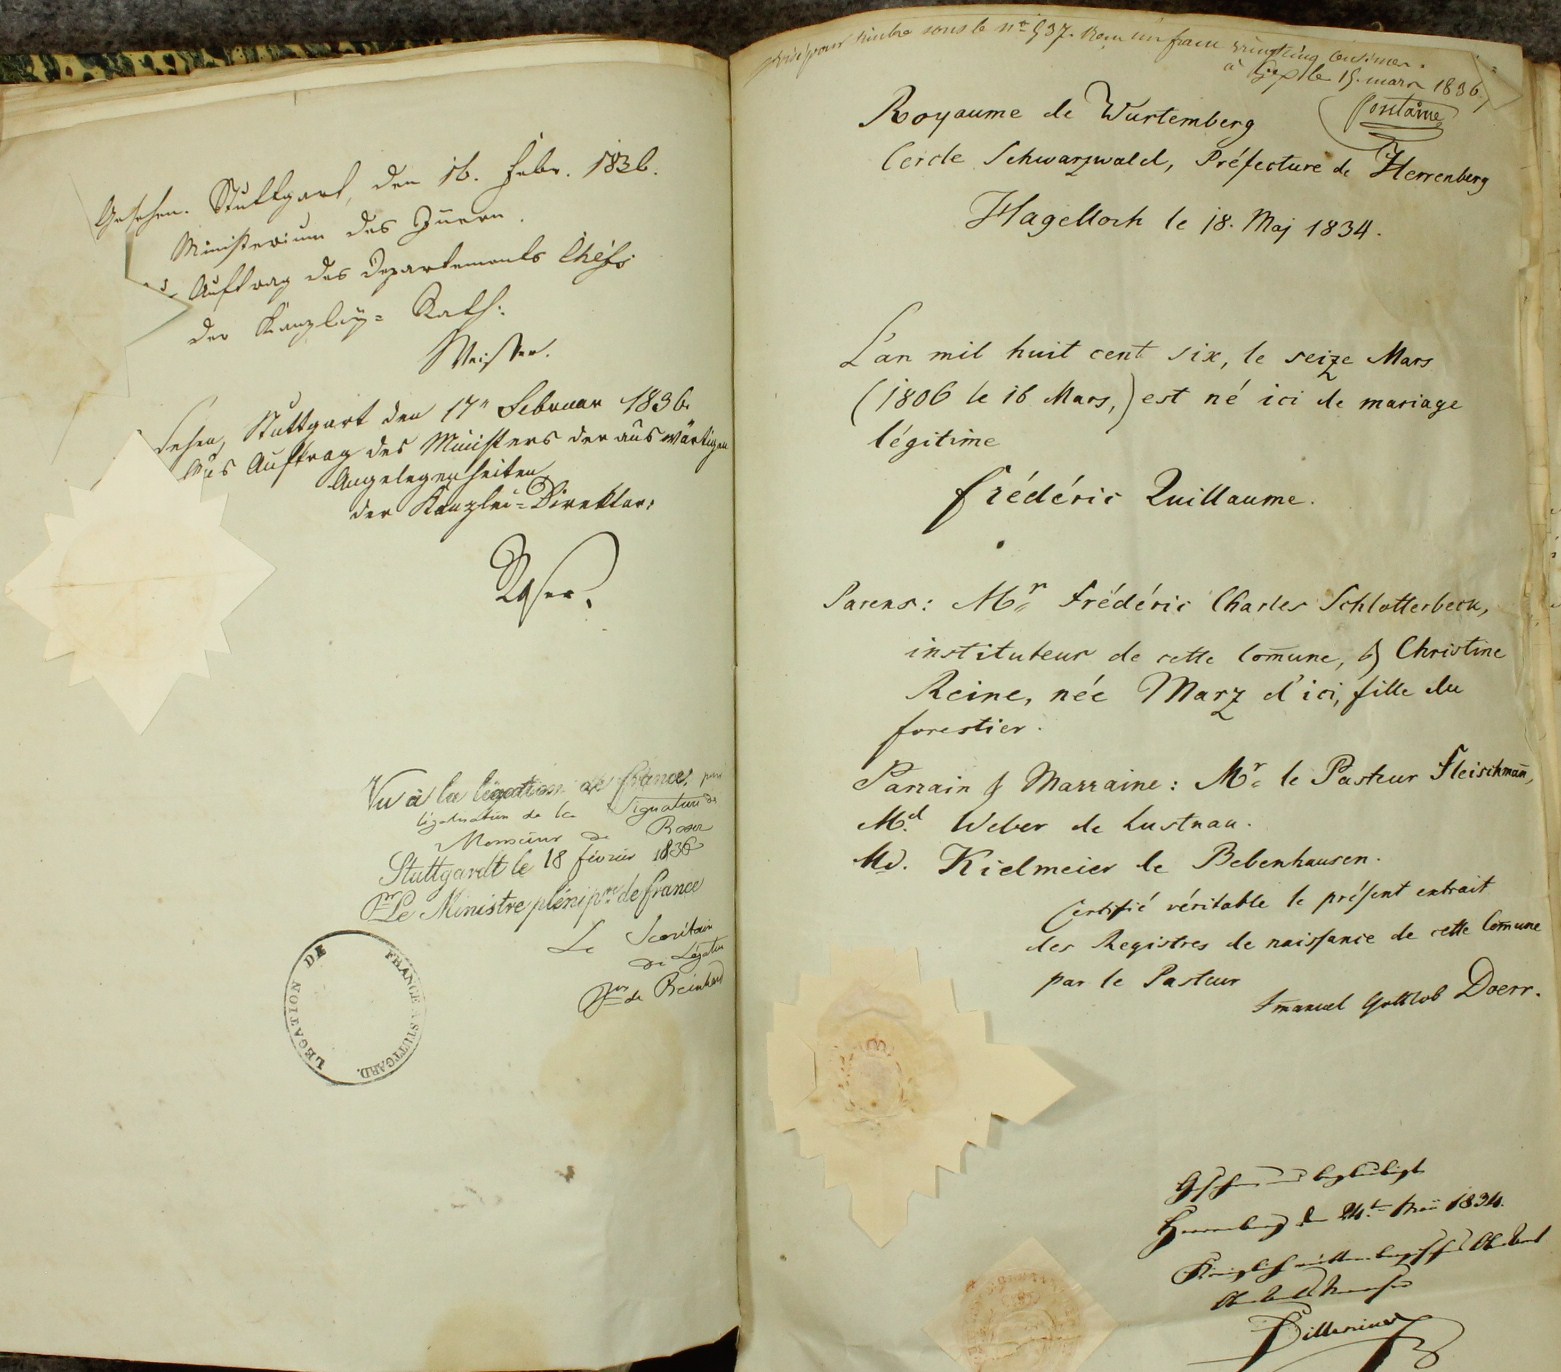 Gesehen. Stuttgart, den 16. Febr. 1836.
Ministerium des Innern.
Auftrag des Departements Chefs
der Kanzley-Rath:
Meisser.
sehen, Stuttgart den 17n Februar 1836.
Aus Auftrag des Ministers der auswärtigen
Angelegenheiten
der Kanzlei-Direktor,
Roser.
Vu à la légation de france, pour
légalisation de la Signature de
Monsieur de Roser
Stuttgardt le 18 février 1836
Pr Le Ministre plénipre de france
Le Secrétaire
de Légation
de Reinhard
LÉGATION DE FRANCE A STUTTGARD.
pour timbre sous le nº 537. Reçu un franc vingt cinq centimes.
à le 15. mars 1836.
fontaine
Royaume de Wurtemberg
Cercle Schwarzwald, Préfecture de Herrenberg
Hagelloch le 18. Maj 1834.
L'an mil huit cent six, le seize Mars
(1806 le 16 Mars,) est né ici de mariage
légitime
frédéric Quillaume.
Parens: Mr frédéric Charles Schlotterbeck,
instituteur de cette Com̄une, & Christine
Reine, née Marz d'ici, fille du
forestier.
Parrain & Marraine: Mr le Pasteur Fleischman̄,
Md Weber de Lustnau.
Md. Kielmeier de Bebenhausen.
Certifié véritable le présent extrait
des Registres de naissance de cette Com̄une
par le Pasteur
Im̄anuel Gottlob Doerr.
Gesehen und beglaubigt
Herrenberg den 24.t Mai 1834.
Königlich württembergisches Oberamt